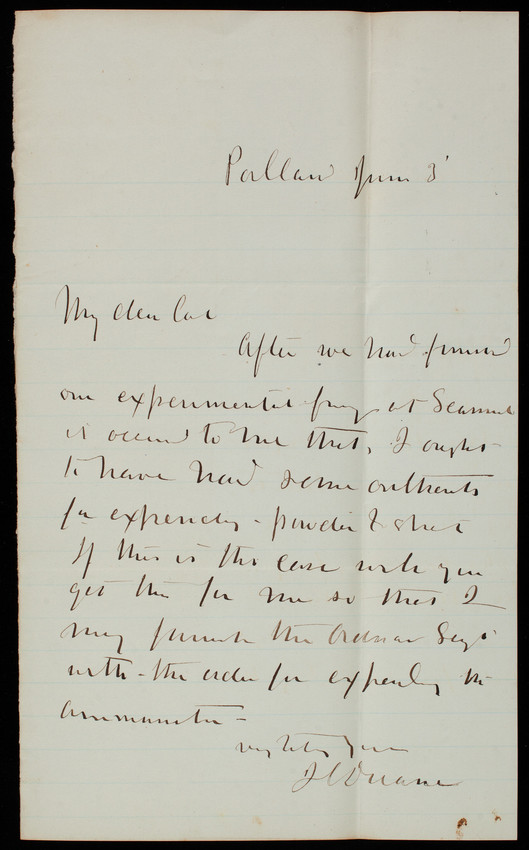 Portland June 3
My dear Col
After we had finished
our experimental firing at Scammel
it occurred to me that, I ought
to have had some authority
for expending powder & shot
If this is the case will you
get this for me so that I
may furnish the Ordnance Sergt
with the order for expending the
ammunition -
very truly yours
J C Duane